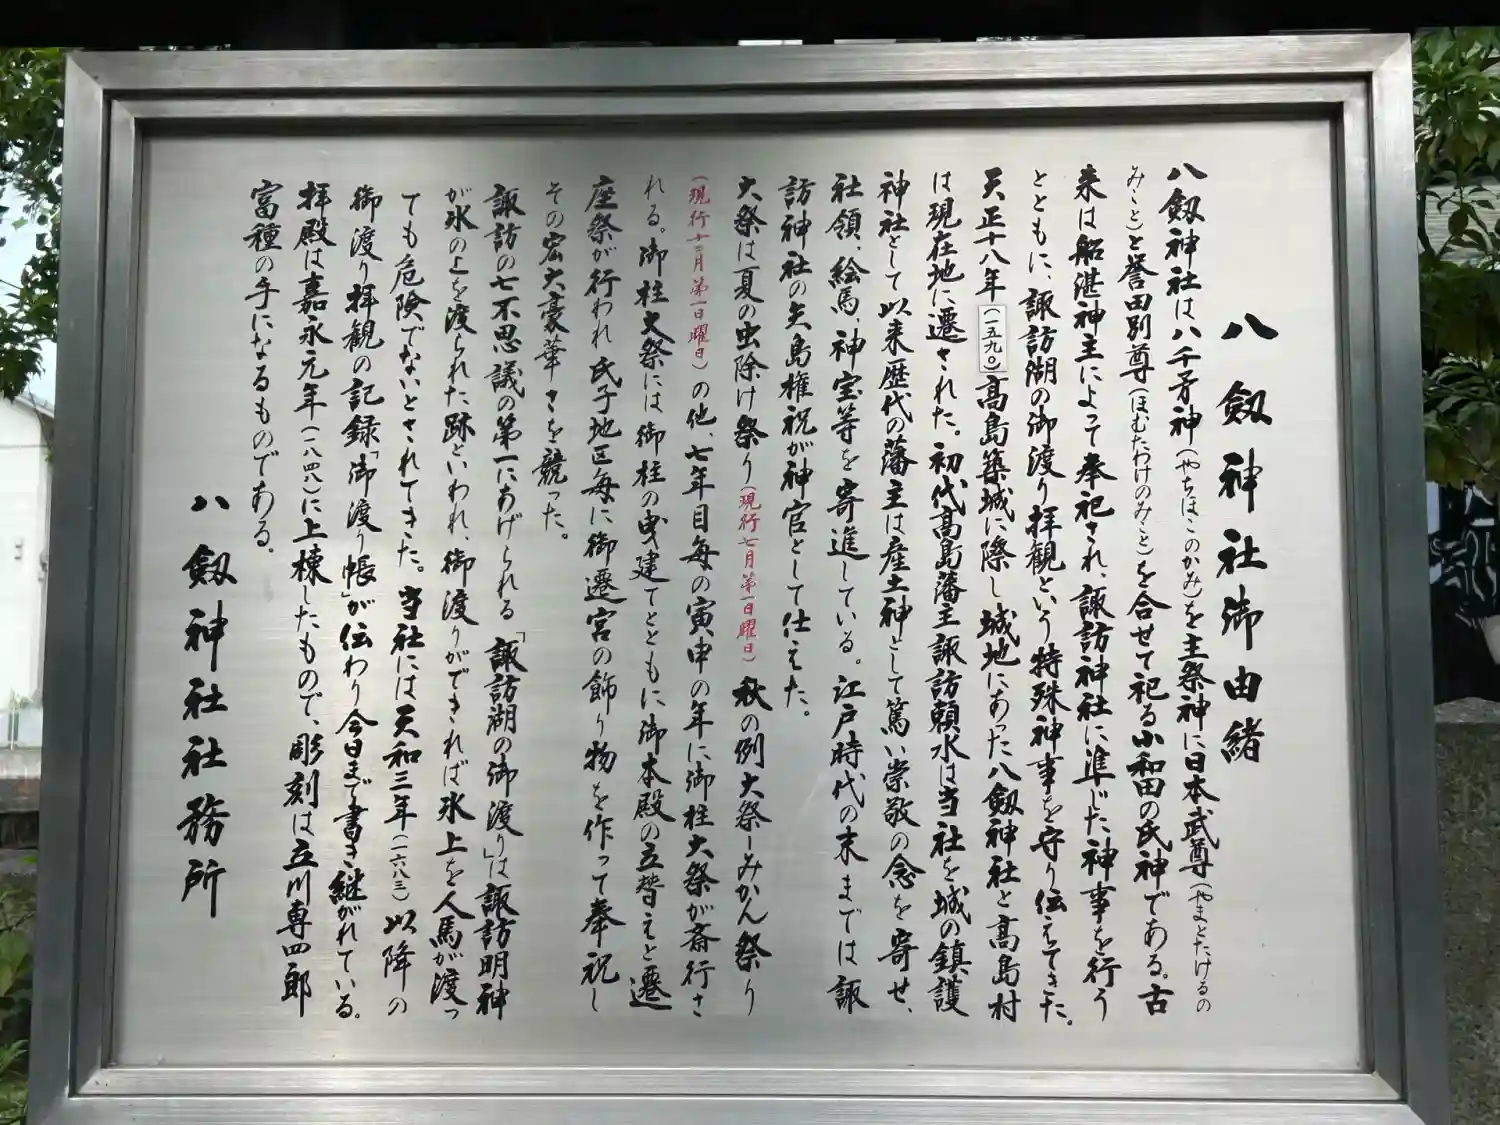 八劔神社御由緒
八劔神社は八千矛神(やちほこのかみ)を主祭神に日本武尊(やまとたけるの
みこと)と誉田別尊(ほむたわけのみこと)を合せて祀る小和田の氏神である。古
来は船湛神主によって奉祀され、諏訪神社に準じた神事を行う
とともに、諏訪湖の御渡り拝観という特殊神事を守り伝えてきた。
天正十八年(一五九〇)高島築城に際し城地にあった八劔神社と高島村
は現在地に遷された。初代高島藩主諏訪頼水は当社を城の鎮護
神社として以来歴代の藩主は産土神として篤い崇敬の念を寄せ、
社領、絵馬、神宝等を寄進している。江戸時代の末までは諏
訪神社の矢島権祝が神官として仕えた。
大祭は夏の虫除け祭り(現行七月第一日曜日)秋の例大祭ーみかん祭り
(現行十二月第一日曜日)の他、七年目毎の寅申の年に御柱大祭が斎行さ
れる。御柱大祭には御柱の曳建てとともに御本殿の立替えと遷
座祭が行われ氏子地区毎に御遷宮の飾り物を作って奉祝し
その宏大豪華さを競った。
諏訪の七不思議の第一にあげられる「諏訪湖の御渡り」は諏訪明神
が氷の上を渡られた跡といわれ、御渡りができれば氷上を人馬が渡っ
ても危険でないとされてきた。当社には天和三年(一六八三)以降の
御渡り拝観の記録「御渡り帳」が伝わり今日まで書き継がれている。
拝殿は嘉永元年(一八四八)に上棟したもので、彫刻は立川専四郎
富種の手になるものである。
八劔神社社務所